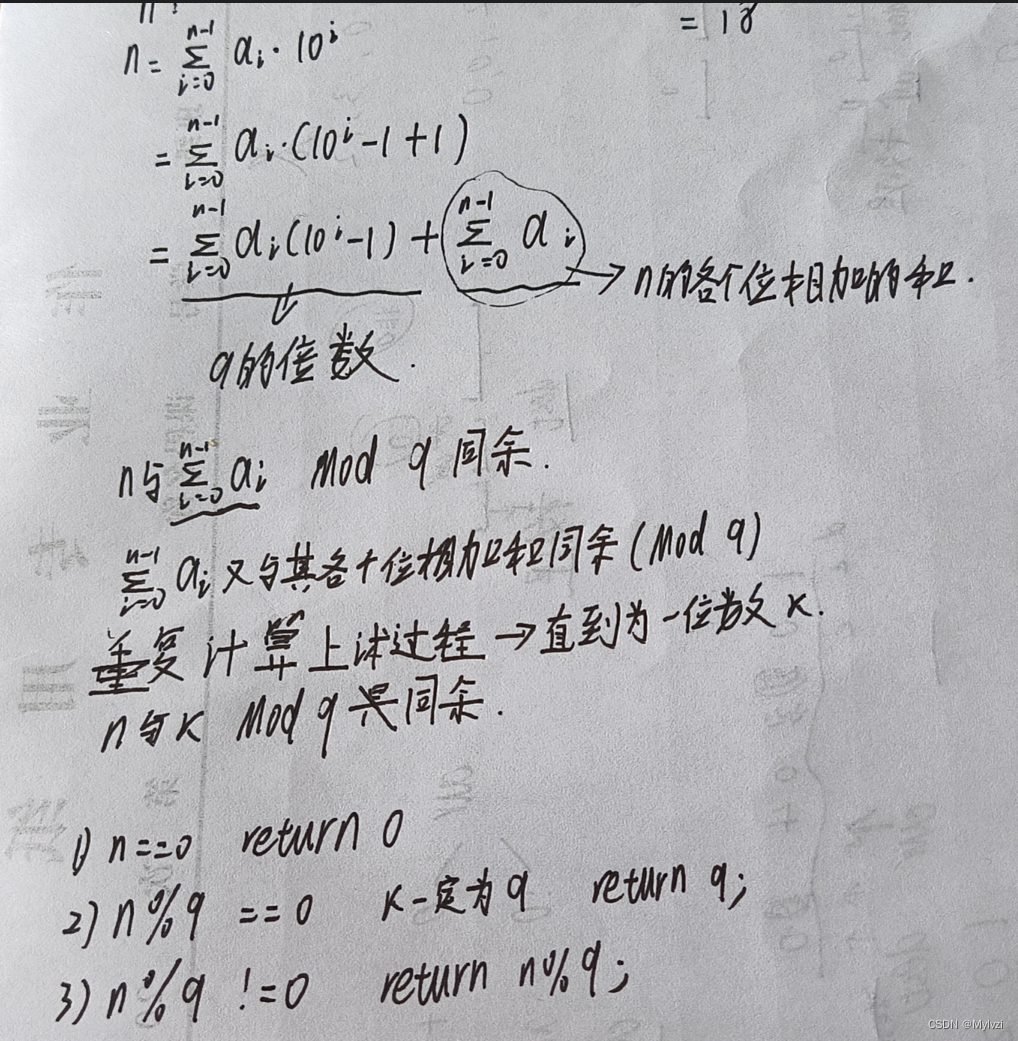 = 18
n = \sum_{i=0}^{n-1} a_i · 10^i
= \sum_{i=0}^{n-1} a_i·(10^i-1+1)
= \sum_{i=0}^{n-1} a_i(10^i-1) + \sum_{i=0}^{n-1} a_i
→ n的各个位相加的和.
9的位数.
n与 \sum_{i=0}^{n-1} a_i Mod 9 同余.
\sum_{i=0}^{n-1} a_i 又与其各个位相加和同余(Mod 9)
重复计算上述过程 → 直到为一位数 K.
n与K Mod 9 是同余.
1) n==0 return 0
2) n%9 ==0 K一定为9 return 9;
3) n%9 !=0 return n%9;
CSDN @Mylvzi